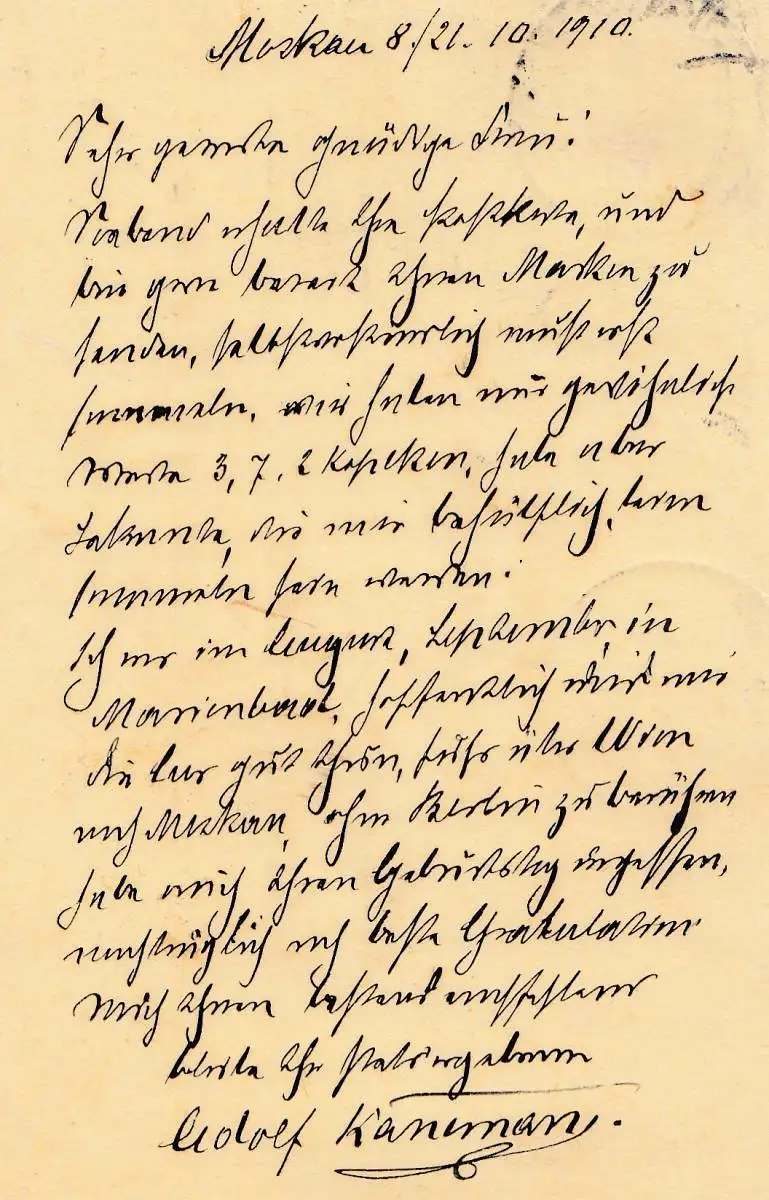 Moskau 8./21. 10. 1910.
Sehr geehrte gnädige Frau!
Soeben erhalte Ihre Postkarte, und
bin gern bereit Ihnen Marken zu
senden, selbstverständlich muß erst
sammeln, wir haben nur gewöhnliche
Werte 3, 7, 2 Kopeken, habe aber
Bekannte, die mir behülflich beim
sammeln sein werden.
Ich war im August, September in
Marienbad, hoffentlich wird mir
die Cur gut thun, fuhr über Wien
nach Moskau, ohne Berlin zu berühren
habe auch Ihren Geburtstag vergessen,
nachträglich noch beste Gratulation
Mich Ihnen bestens empfehlend
bleibe Ihr stets ergebener
Adolf